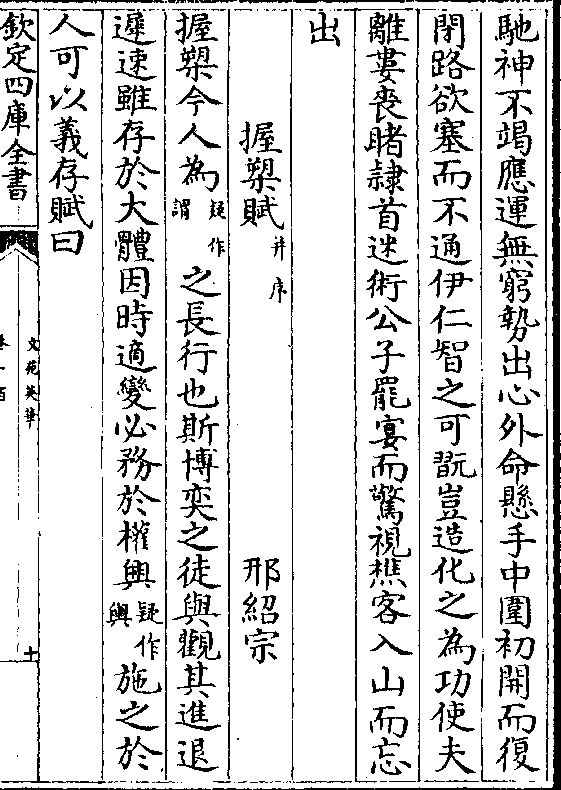 馳神不竭應運無窮勢出心外命懸手中圍初開而復
閉路欲塞而不通伊仁智之可翫豈造化之為功使夫
離婁喪睹隷首迷術公子罷宴而驚視樵客入山而忘
出
握槊賦并序 邢紹宗
握槊今人為疑作謂之長行也斯博奕之徒與觀其進退
遲速雖存於大體因時適變必務於權興疑作與施之於
人可以義存賦曰
欽定四庫全書 文苑英華 十